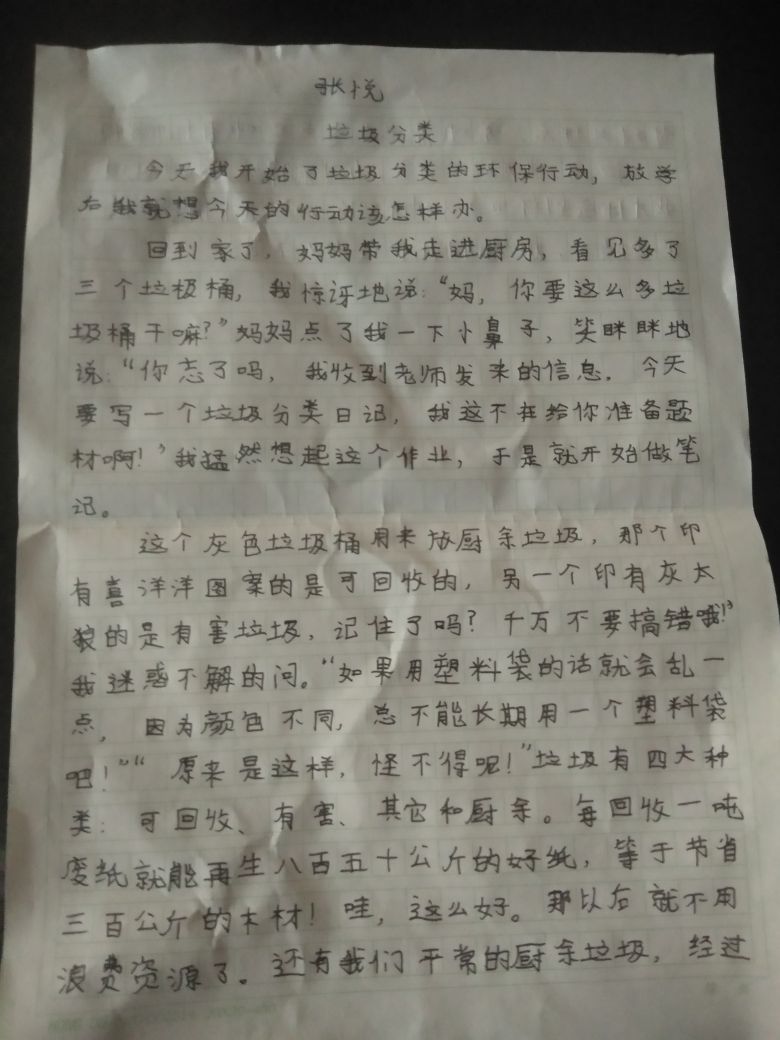 张悦
垃圾分类
今天我开始了垃圾分类的环保行动，放学
后我就想今天的行动该怎样办。
回到家了，妈妈带我走进厨房，看见多了
三个垃极桶，我惊讶地说：“妈，你要这么多垃
圾桶干嘛？”妈妈点了我一下小鼻子，笑眯眯地
说：“你忘了吗，我收到老师发来的信息，今天
要写一个垃圾分类日记，我这不在给你准备题
材啊！”我猛然想起这个作业，于是就开始做笔
记。
这个灰色垃圾桶用来放厨余垃圾，那个印
有喜洋洋图案的是可回收的，另一个印有灰太
狼的是有害垃圾，记住了吗？千万不要搞错哦！”
我迷惑不解的问。“如果用塑料袋的话就会乱一
点，因为颜色不同，总不能长期用一个塑料袋
吧！”“原来是这样，怪不得呢！”垃圾有四大种
类：可回收、有害、其它和厨余。每回收一吨
废纸就能再生八百五十公斤的好纸，等于节省
三百公斤的木材！哇，这么好。那以后就不用
浪费资源了。还有我们平常的厨余垃圾，经过